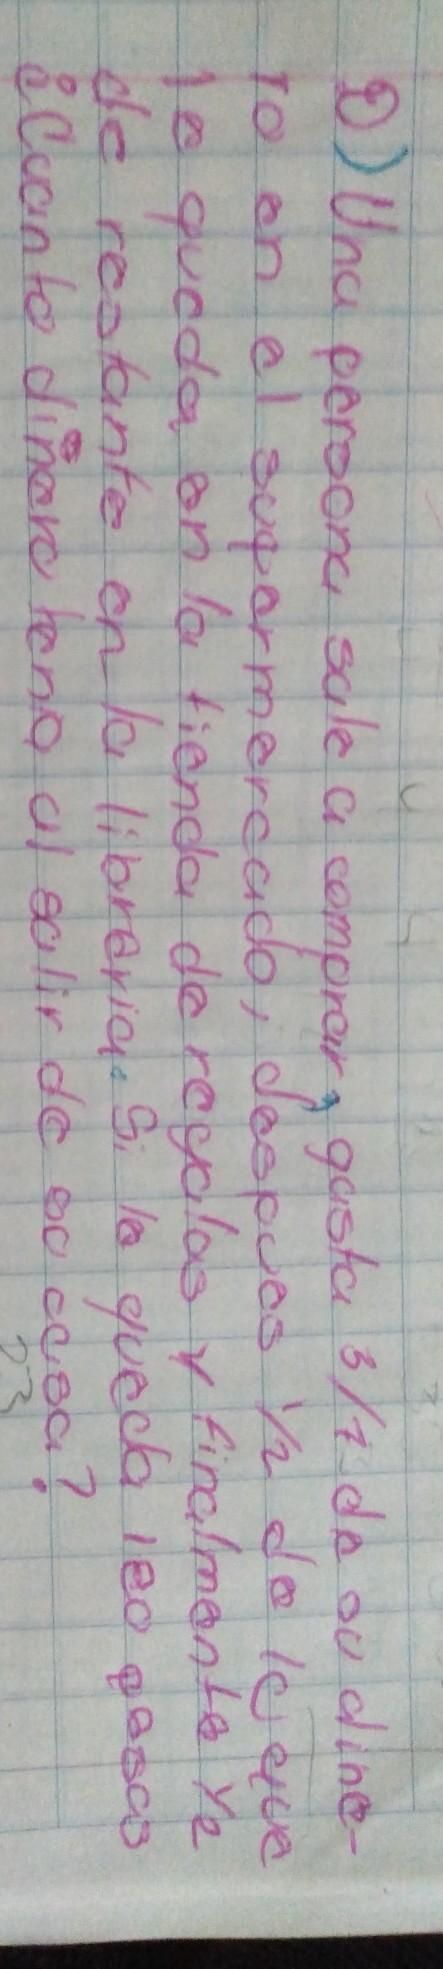 D) Una persona sale a comprar, gasta 3/7 de su dine-
ro en el supermercado, despues 1/2 de lo que
le queda en la tienda de regalos y finalmente 1/2
de restante en la libreria. Si le queda 180 pesos
¿Cuanto dinero teno al salir de so casa?